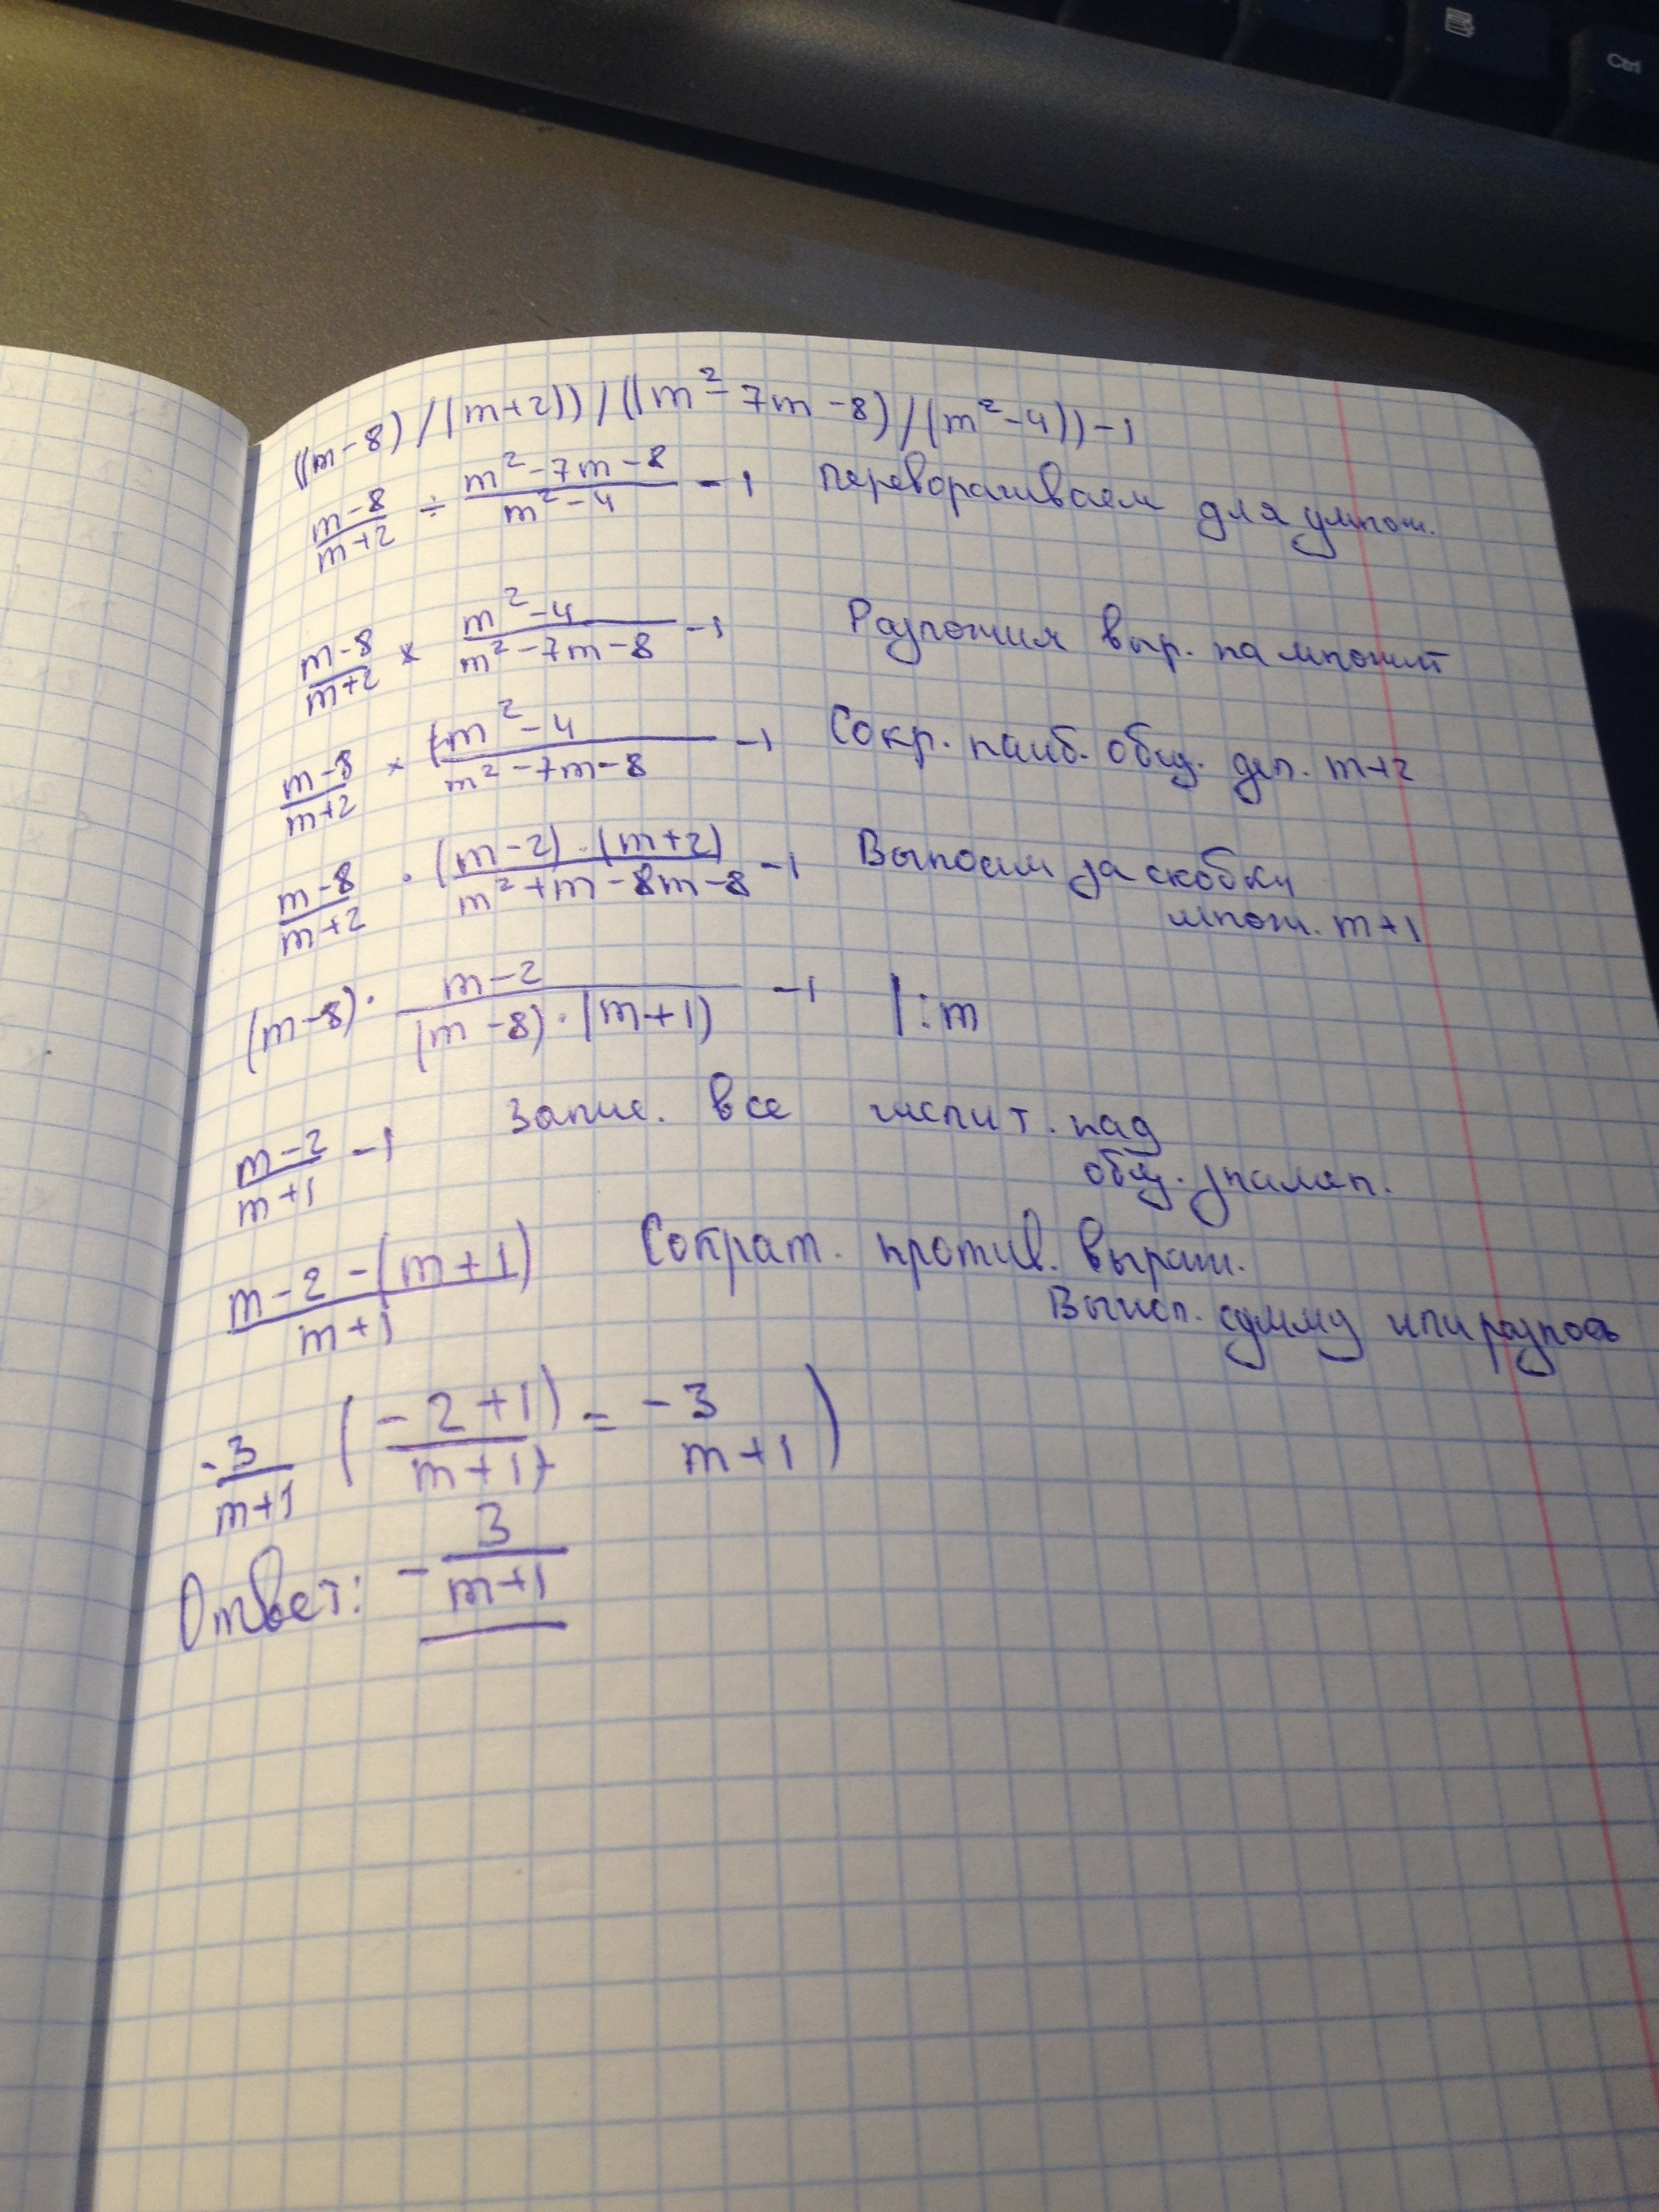 Ctrl
((m-8)/(m+2))/((m²-7m-8)/(m²-4))-1
(m-8)/(m+2) ÷ (m²-7m-8)/(m²-4) -1 переворачиваем для умнож.
(m-8)/(m+2) × (m²-4)/(m²-7m-8) -1 Разложим выр. на множит
(m-8)/(m+2) × (m²-4)/(m²-7m-8) -1 Сокр. наиб. общ. дел. m+2
(m-8)/(m+2) · (m-2)·(m+2)/(m²+m-8m-8) -1 Выносим за скобки
множ. m+1
(m-8)· (m-2)/((m-8)·(m+1)) -1 |:m
(m-2)/(m+1) -1 Запис. все числит. над
общ. знамен.
(m-2-(m+1))/(m+1) Сократ. против. выраж.
Вычисл. сумму или разность
-3/(m+1) ((-2+1)/(m+1) = -3/(m+1))
Ответ: -3/(m+1)